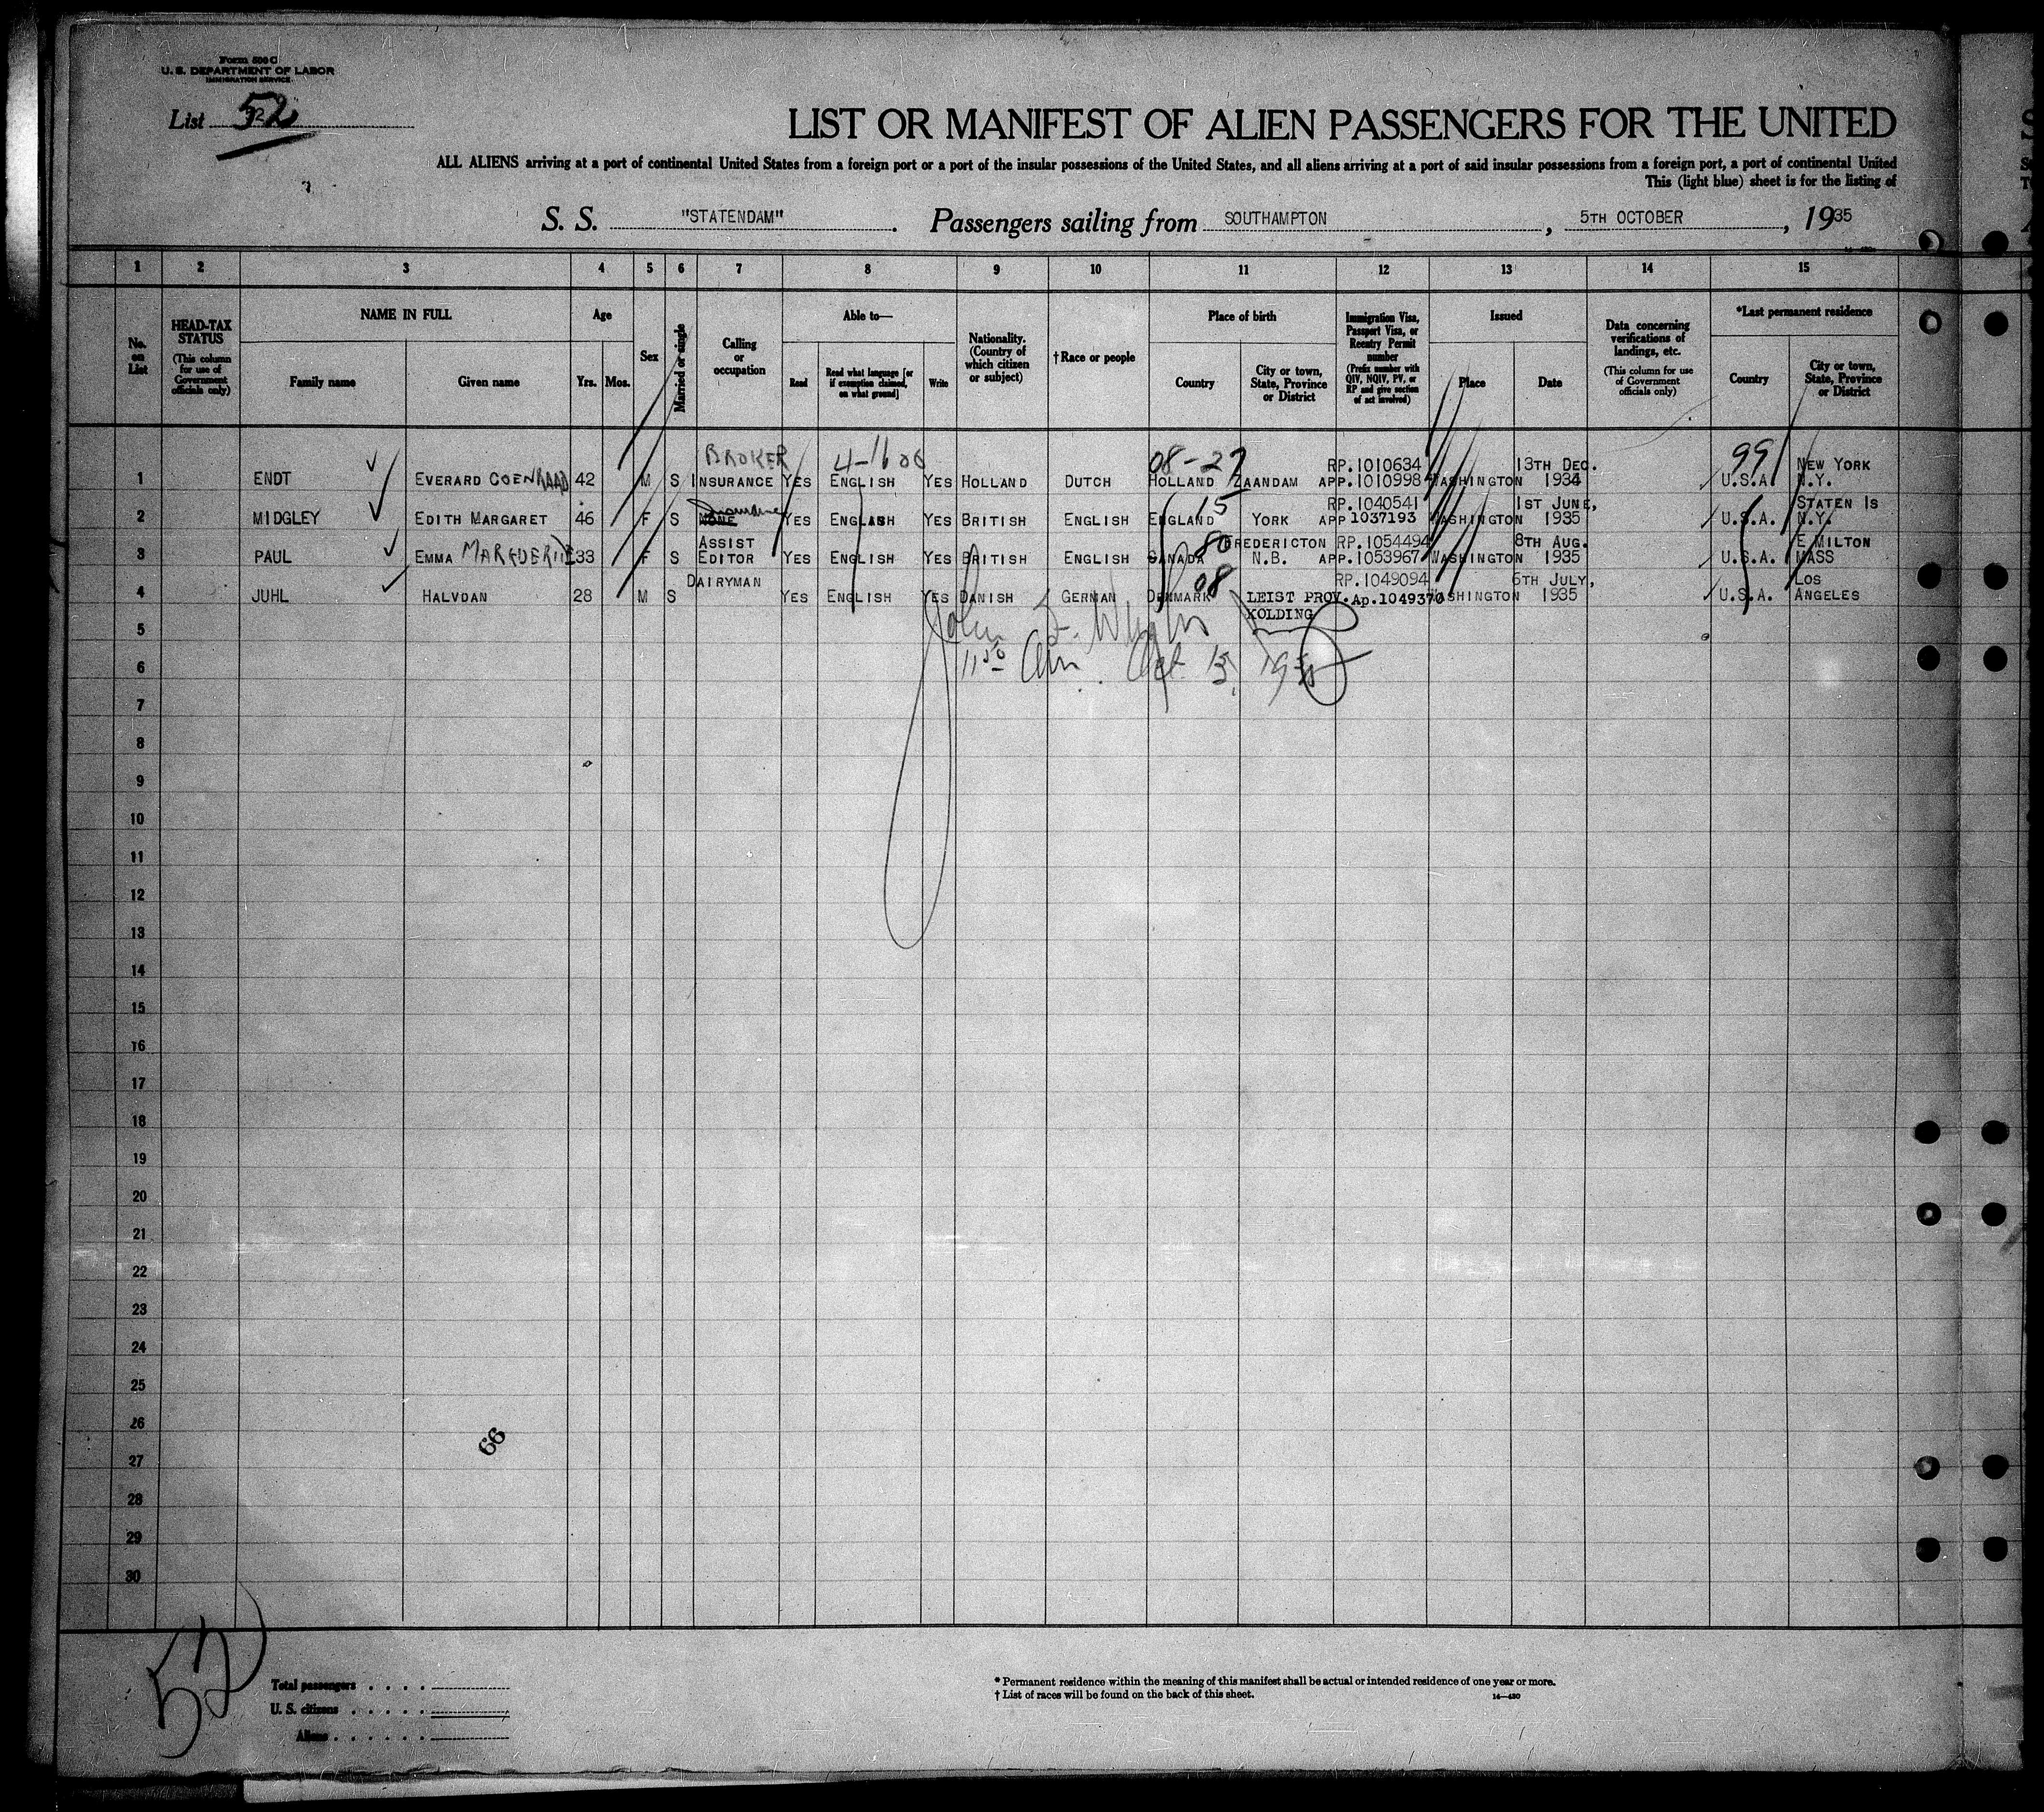 Form 500 C
U. S. DEPARTMENT OF LABOR
IMMIGRATION SERVICE
List 52
LIST OR MANIFEST OF ALIEN PASSENGERS FOR THE UNITED
ALL ALIENS arriving at a port of continental United States from a foreign port or a port of the insular possessions of the United States, and all aliens arriving at a port of said insular possessions from a foreign port, a port of continental United
This (light blue) sheet is for the listing of
S. S. "STATENDAM". Passengers sailing from SOUTHAMPTON, 5TH OCTOBER, 1935
1 2 3 4 5 6 7 8 9 10 11 12 13 14 15
No. on List
HEAD-TAX STATUS (This column for use of Government officials only)
NAME IN FULL
Family name Given name
Age
Yrs. Mos.
Sex
Married or single
Calling or occupation
Able to—
Read
Read what language [or if exemption claimed, on what ground]
Write
Nationality. (Country of which citizen or subject)
†Race or people
Place of birth
Country
City or town, State, Province or District
Immigration Visa, Passport Visa, or Reentry Permit number (Prefix number with QIV, NQIV, PV, or RP and give section of act involved)
Issued
Place Date
Data concerning verifications of landings, etc. (This column for use of Government officials only)
*Last permanent residence
Country
City or town, State, Province or District
BROKER 08-27 RP.1010634 13TH DEC. 99 NEW YORK
1 ENDT EVERARD COENRAAD 42 M S INSURANCE YES ENGLISH YES HOLLAND DUTCH HOLLAND ZAANDAM APP.1010998 WASHINGTON 1934 U.S.A. N.Y.
15 RP.1040541 1ST JUNE, STATEN IS
2 MIDGLEY EDITH MARGARET 46 F S NONE YES ENGLISH YES BRITISH ENGLISH ENGLAND YORK APP 1037193 WASHINGTON 1935 U.S.A. N.Y.
ASSIST 80 FREDERICTON RP.1054494 8TH AUG. E MILTON
3 PAUL EMMA MARGUERITE 33 F S EDITOR YES ENGLISH YES BRITISH ENGLISH CANADA N.B. APP.1053967 WASHINGTON 1935 U.S.A. MASS
DAIRYMAN 08 RP.1049094 6TH JULY, LOS
4 JUHL HALVDAN 28 M S YES ENGLISH YES DANISH GERMAN DENMARK LEIST PROV. Ap.1049370 WASHINGTON 1935 U.S.A. ANGELES
5 KOLDING
John
6 11 50 Am. Oct 13, 1935
7
8
9
10
11
12
13
14
15
16
17
18
19
20
21
22
23
24
25
26
66
27
28
29
30
52
Total passengers
U. S. citizens
Aliens
* Permanent residence within the meaning of this manifest shall be actual or intended residence of one year or more.
† List of races will be found on the back of this sheet.
14—430